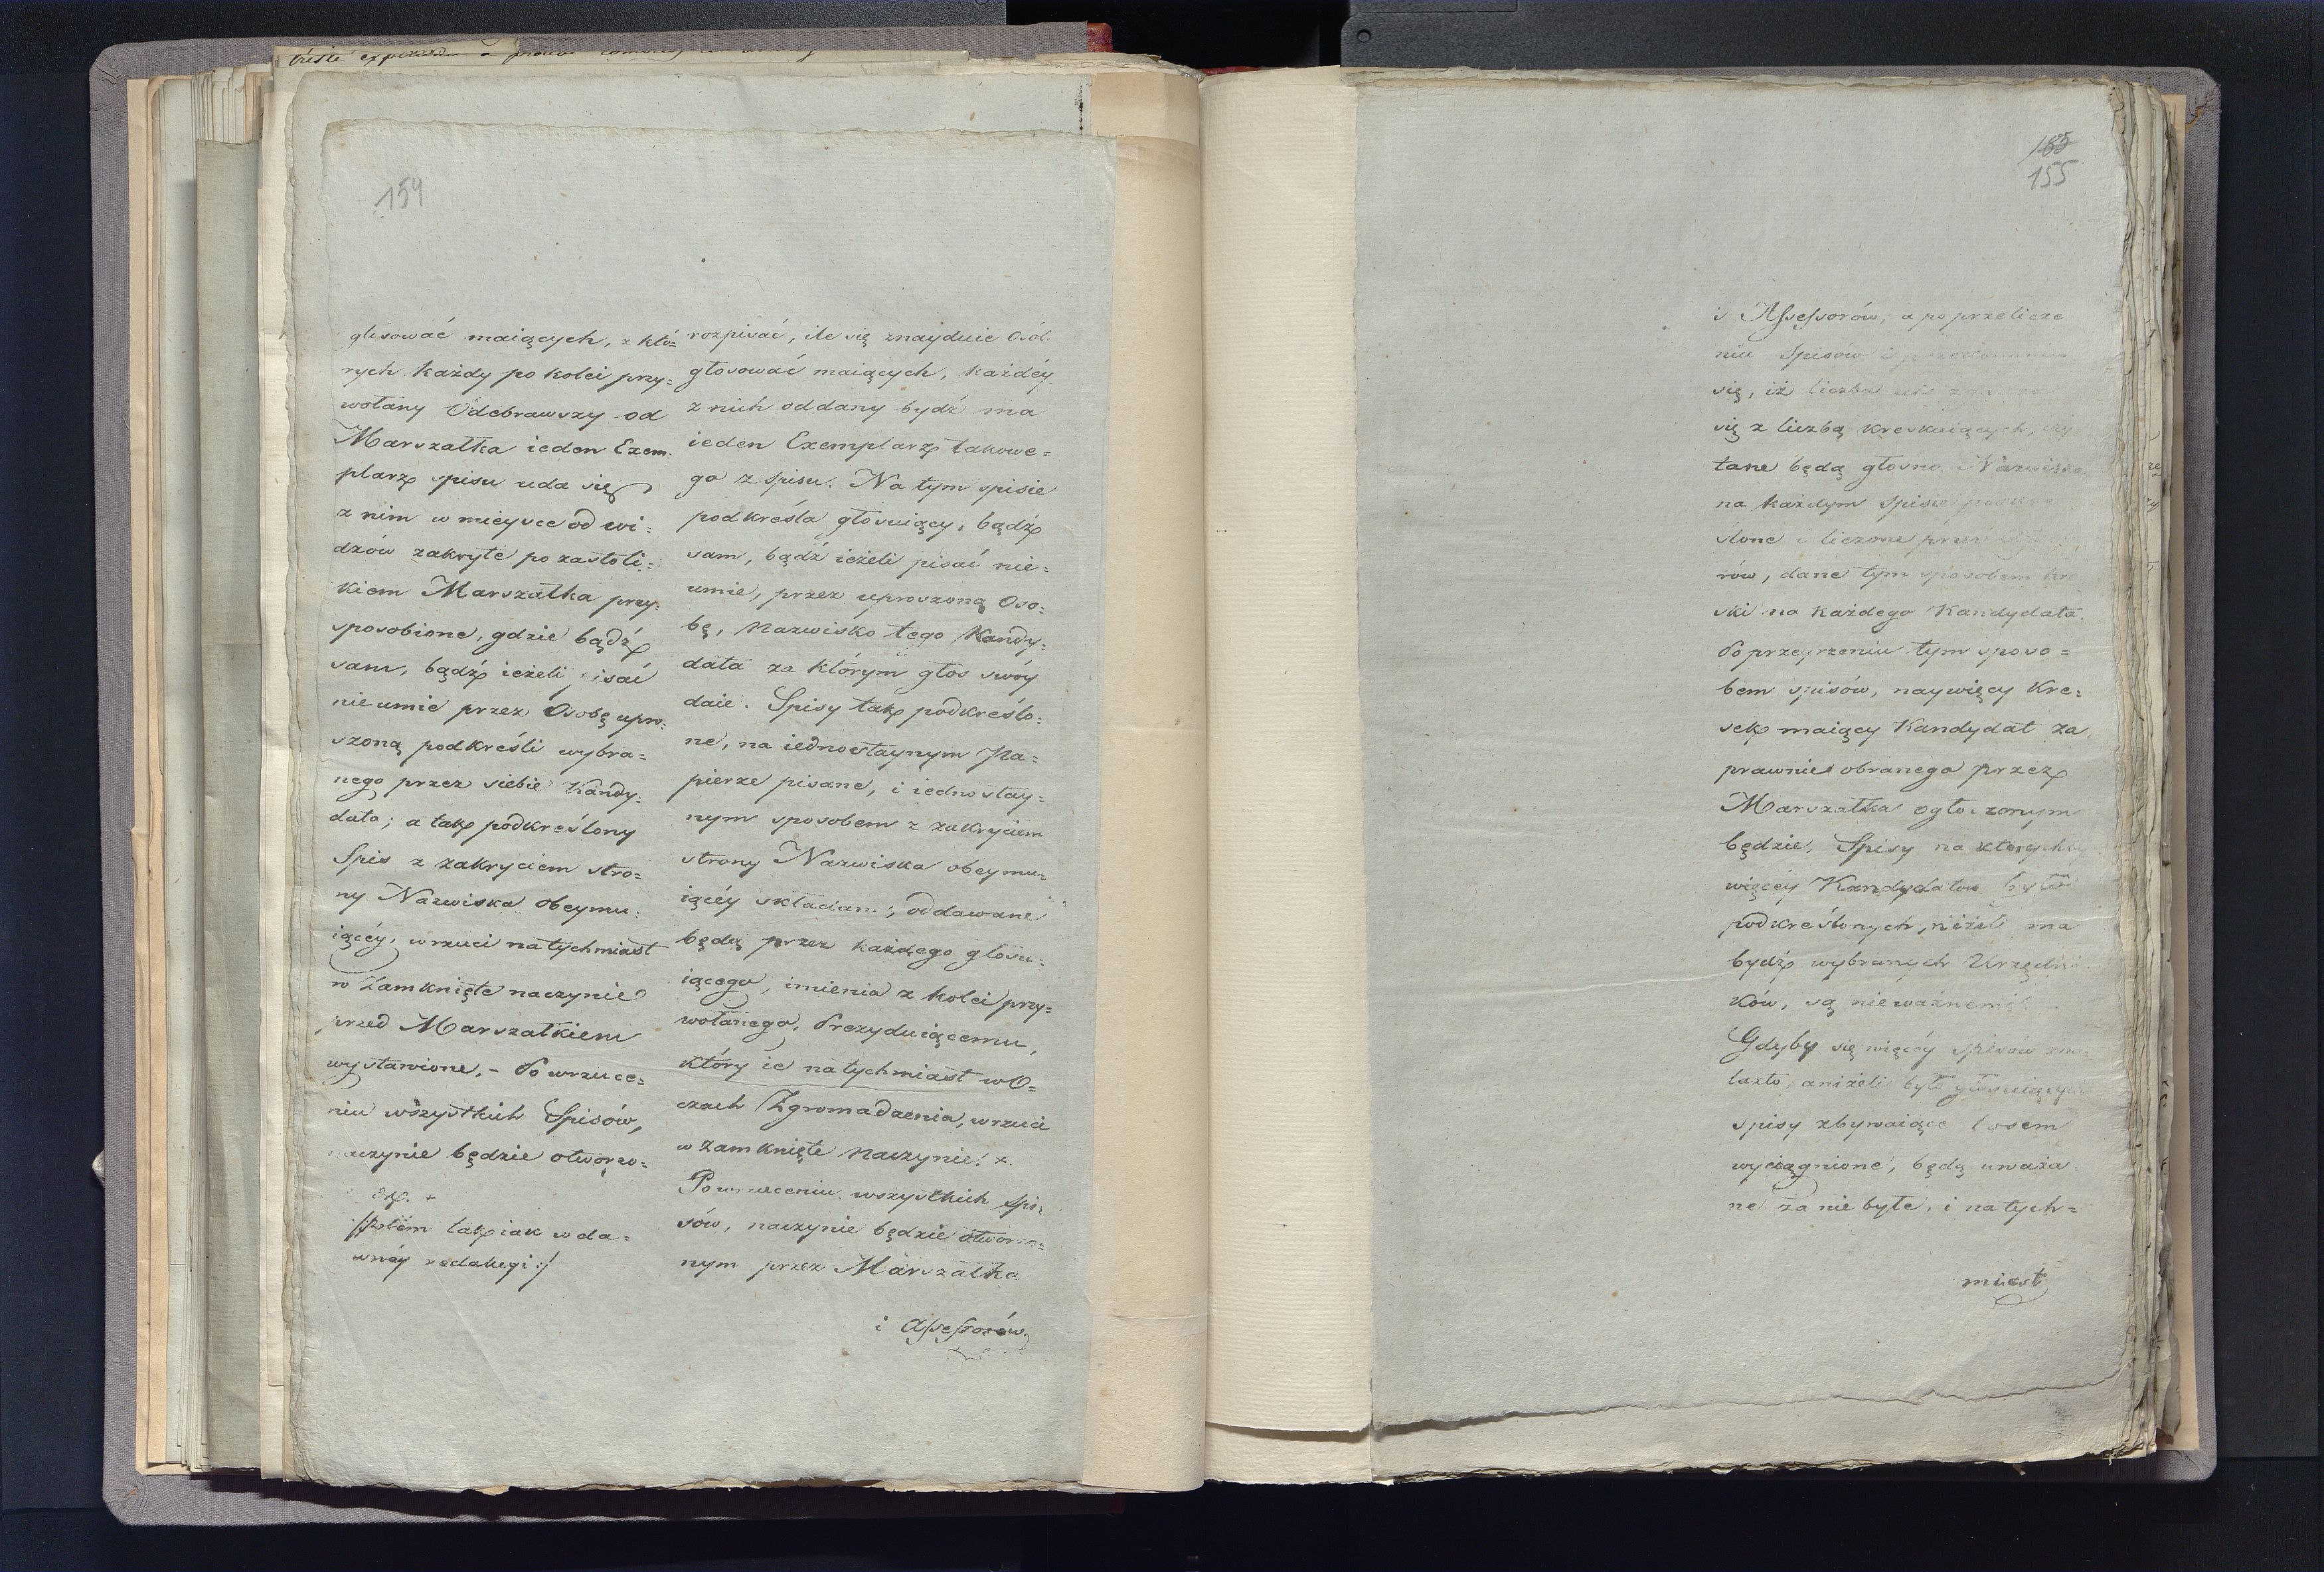 154
glosować maiących, z któ=
rych każdy po kolei przy=
wołany Odebrawszy od
Marszałka ieden Exem=
plarz spisu uda się
z nim w mieysce od wi=
dzów zakryte po za stoli=
kiem Marszałka przy=
sposobione, gdzie bądź
sam, bądź ieżeli pisać
nie umie przez Osobę upro=
szoną podkreśli wybra=
nego przez siebie Kandy=
data; a tak podkreślony
Spis z zakryciem stro=
ny Nazwiska obeymu=
iącéy, wrzuci natychmiast
w Zamknięte naczynie
przed Marszałkiem
wystawione. – Po wrzuce=
niu wszystkich Spisów,
naczynie będzie otworzo=
potém tak iak w da=
wnéy redakcyi :/
rozpisać, ile się znayduie Osób
głosować maiących, każdéy
z nich oddany bydź ma
ieden Exemplarz takowe=
go z spisu. Na tym spisie
podkreśla głosuiący, bądź
sam, bądź ieżeli pisać nie=
umie, przez uproszoną Oso=
bę, Nazwisko tego Kandy=
data za którym głos swóy
daie. Spisy tak podkreślo=
ne, na iednostaynym Pa=
pierze pisane, i iednostay=
nym sposobem z zakryciem
strony Nazwiska obeymu=
iącéy składane, oddawane
będą przez każdego głosu=
iącego, imienia z kolei przy=
wołanego, Prezyduiącemu,
który ie natychmiast w O=
czach Zgromadzenia, wrzuci
w zamknięte Naczynie. x.
Po wrzuceniu wszystkich Spi=
sów, naczynie będzie otworzo=
nym przez Marszałka
i Assessorów,
155
i Assessorów, a po przelicze
niu Spisów i
się, iż liczba ich
się z liczbą kreskuiących, czy
tane będą głosno Nazwiska
na każdym spisie podkre
slone i liczone przez
rów, dane tym sposobem kre
ski na każdego Kandydata.
Po przeyrzeniu tym sposo=
bem spisów, naywięcy Kre=
sek maiący Kandydat za
prawnie obranego przez
Marszałka ogłoszonym
będzie. Spisy na których by
więcéy Kandydatów było
podkreślonych, niżeli ma
bydź wybranych Urzędni
ków, są nieważnemi.
Gdyby się więcéy spisów zna=
lazło, aniżeli było głosuiących
spisy zbywaiące losem
wyciągnione, będą uważa
ne za nie byłe, i natych=
miast